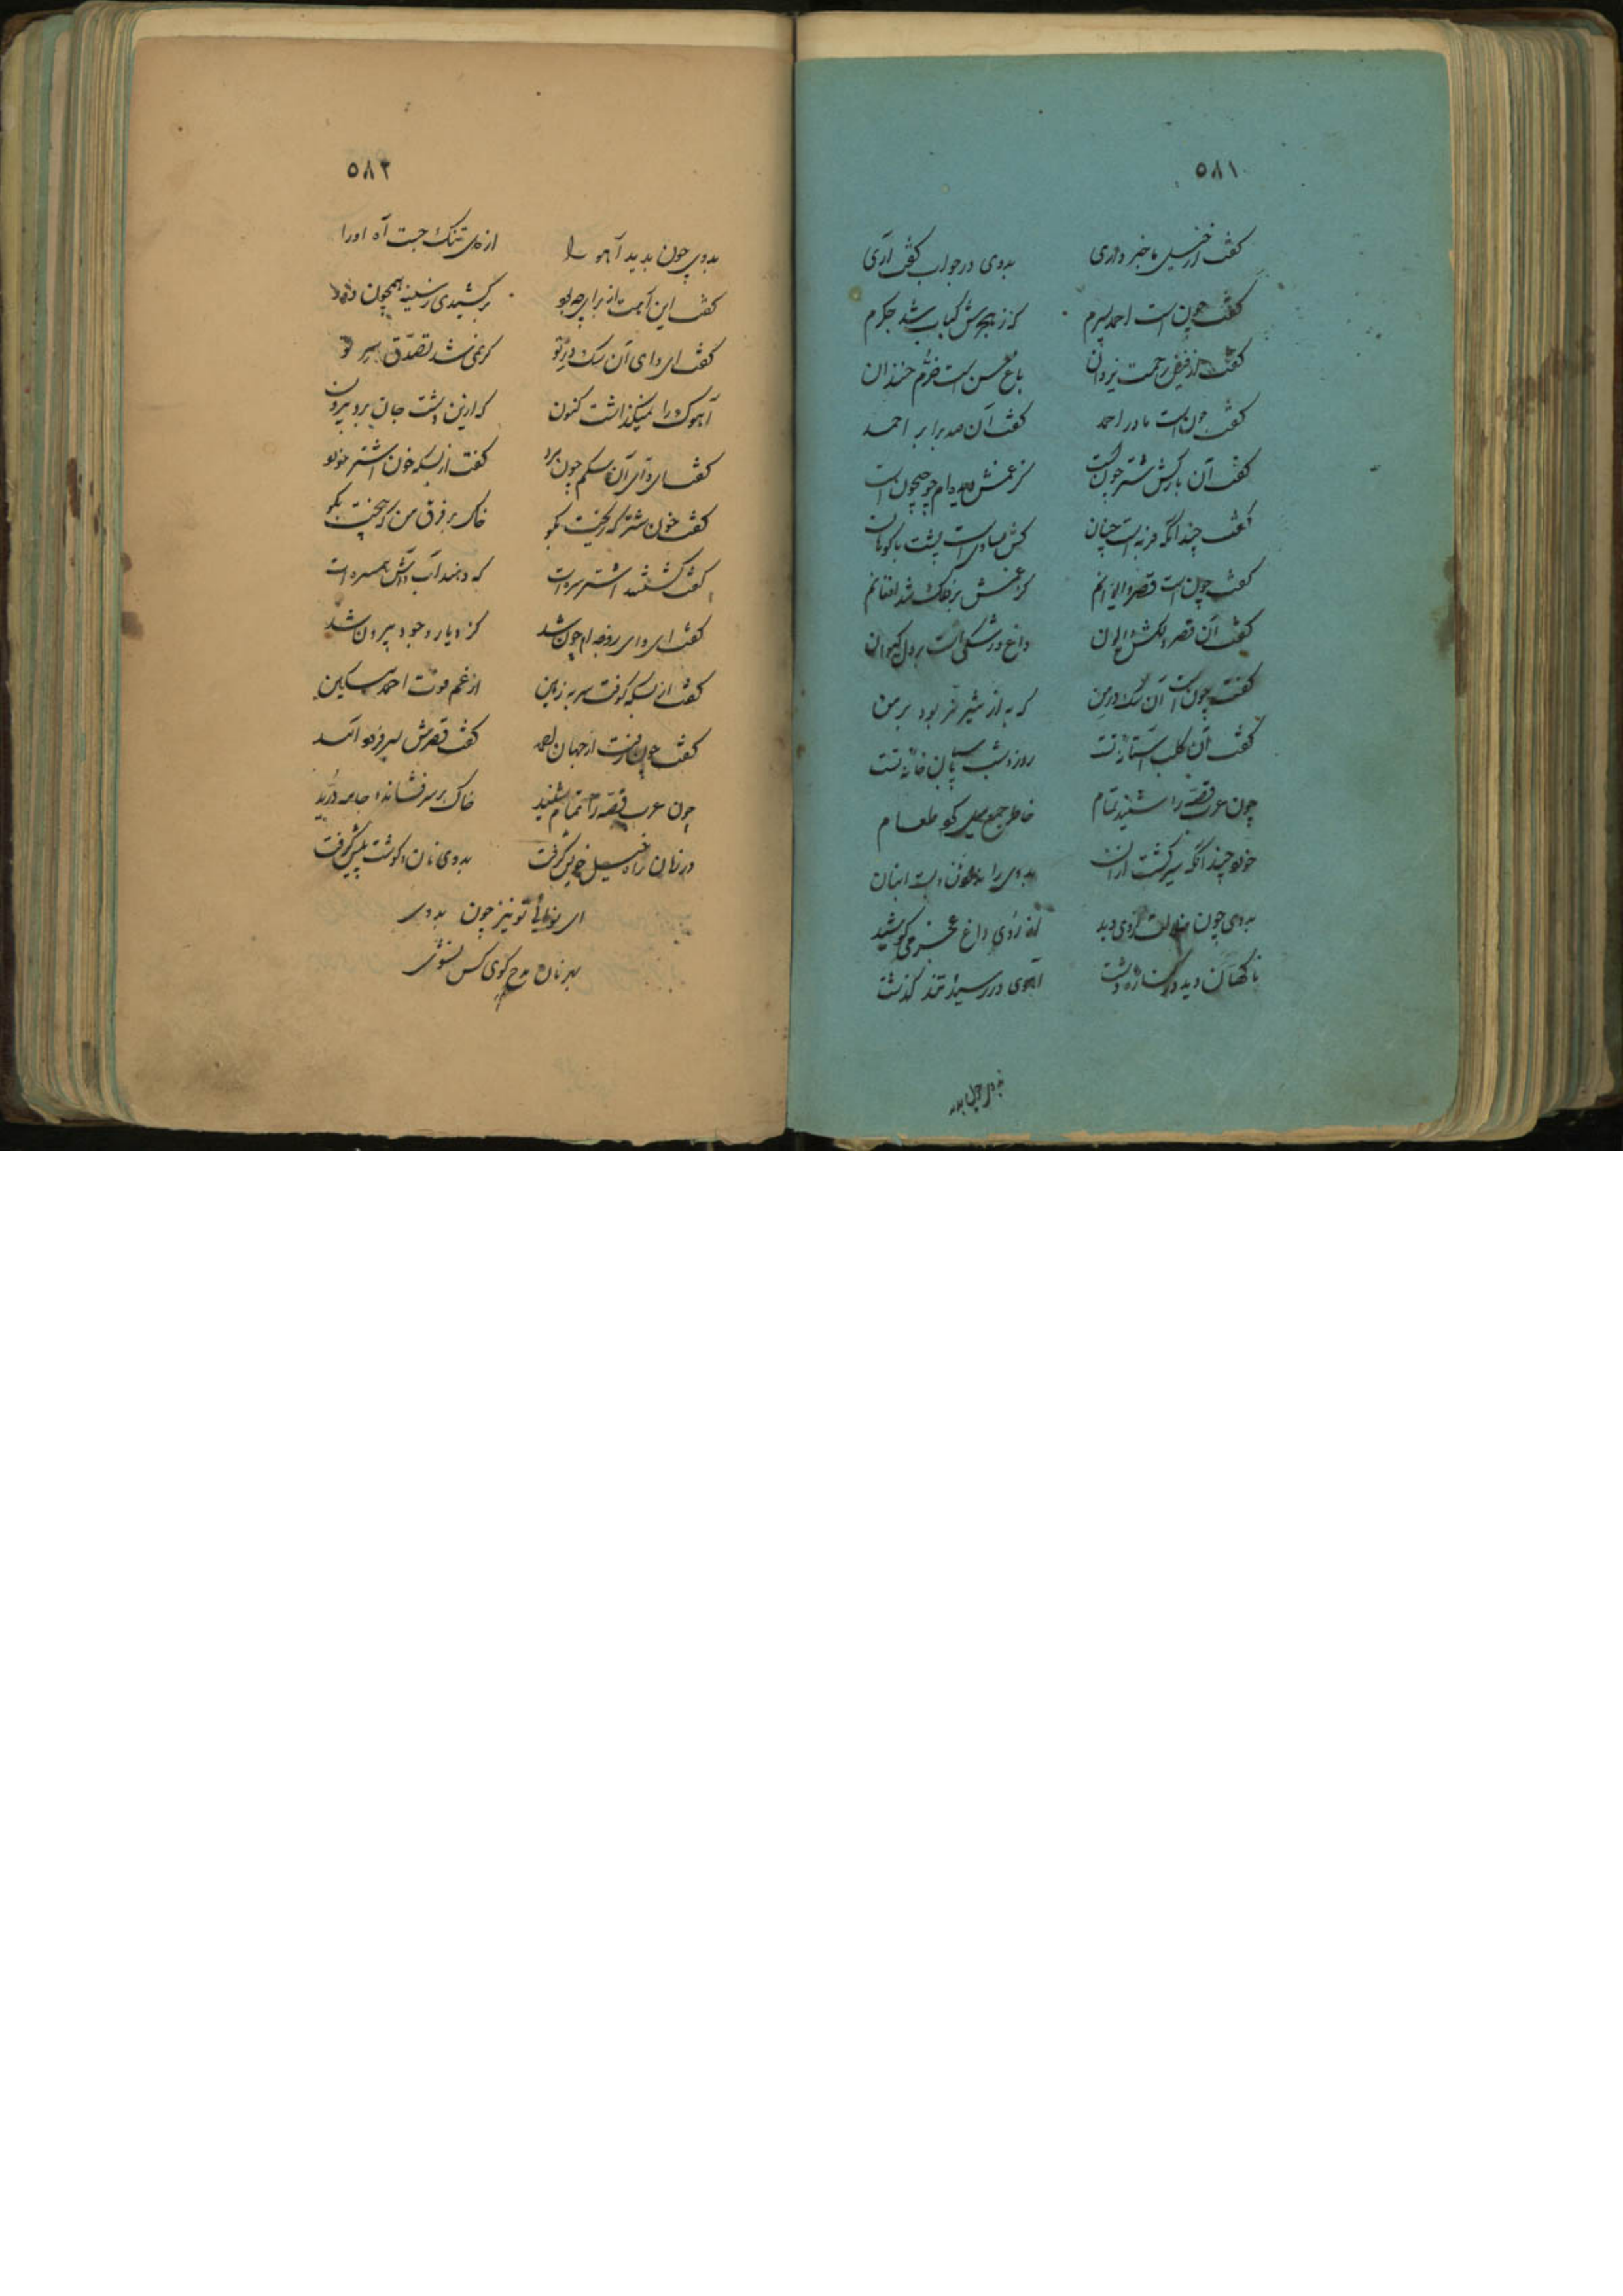 ۵۸۱
گفت از خیل ما خبر داری بدوی در جواب گفت آری
گفت چون است احمد پسرم که ز هجرش کباب شد جگرم
گفت از فیض رحمت یزدان باغ حسن است خرم خندان
گفت چون است مادر احمد گفت آن صد برابر احمد
گفت آن بارکش شتر چون است کز غمش دیده‌ام چو جیحون است
گفت چندانکه فربه است چنان کش مساوی است پشت با کوهان
گفت چون است قصر و ایوانم کز غمش بر فلک شد افغانم
گفت آن قصر دلکش و ایوان داغ و رشکی است بر دل کیوان
گفت چون است آن سگ در من که به از شیر نر بود بر من
گفت آن کلب آستانه تست روز و شب پاسبان خانه تست
چون عرب قصه را شنید تمام خاطر جمع کو طعام
خورد چندانکه سیر گشت از آن بدوی را بست انبان
بدوی چون از وی دید از داغ می کوشید
ناگهان دید در کناره دشت آهوی در رسید تند گذشت
بدوی چون بدید
۵۸۲
بدوی چون بدید آهو را از دل تنگ جست آه او را
گفت این آهت از برای چه بود برکشیدی ز سینه همچون دود
گفت ای وای آن سگ در تو کو نمی شد تصدق سر تو
آهوک را نمیگذاشت کنون که ازین دشت جان برد بیرون
گفت ای وای آن سگم چون مرد گفت از بسکه خون اشتر خورد
گفت خون شتر که ریخت بگو خاک بر فرق من که بیخت بگو
گفت کشتند اشتر سره ات که دهند آب و آش همسره ات
گفت ای وای زوجه ام چون شد کز دیار وجود بیرون شد
گفت از بسکه کوفت سر به زمین از غم موت احمد مسکین
گفت چون رفت از جهان احمد گفت قصرش بسر فرود آمد
چون عرب قصه را تمام شنید خاک بر سر فشاند و جامه درید
در زمان راه خیل خویش گرفت بدوی نان و گوشت پیش گرفت
ای تو نیز چون بدوی
بهر نان مدح گوی کس نشوی